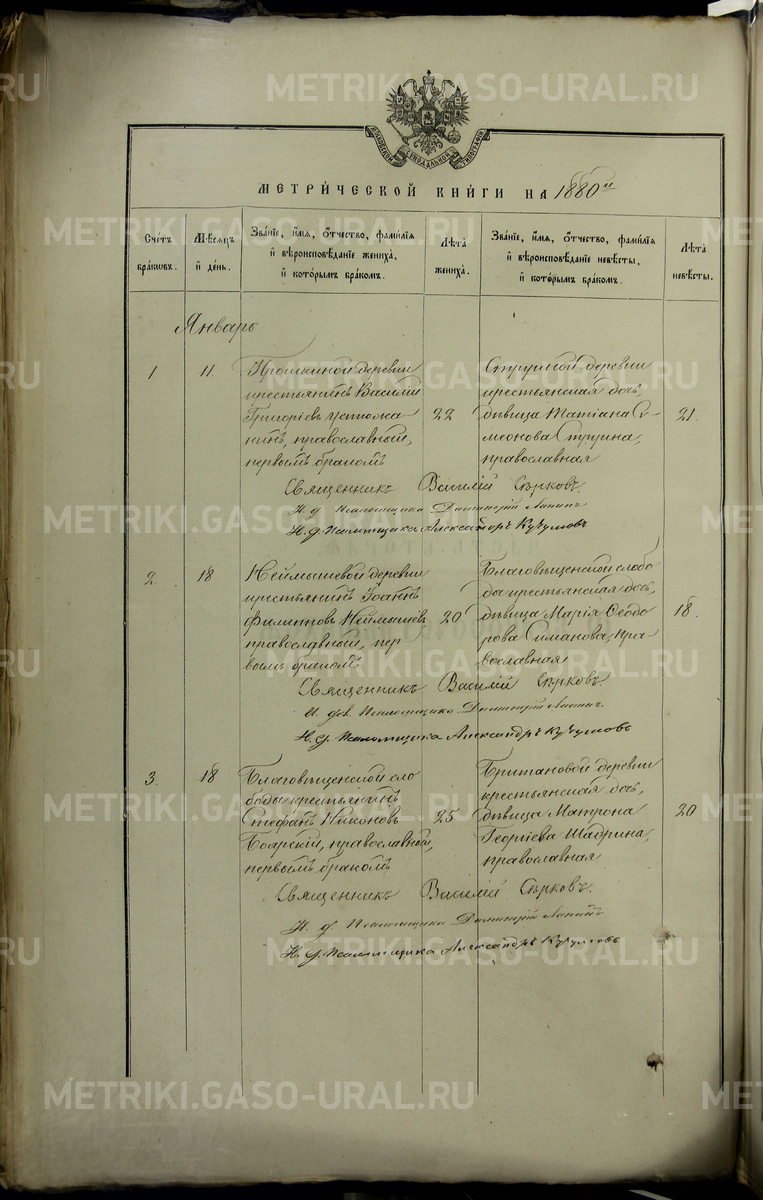 METRIKI.GASO-URAL.RU
МОСКОВСКОЙ СѴНОДАЛЬНОЙ ТИПОГРАФІИ
МЕТРИ́ЧЕСКОЙ КНИ́ГИ НА 1880й
Сче́тъ бра́кѡвъ.
Мѣ́сяцъ й де́нь.
Зва́нїе, и҆́мя, ѻ҆́тчество, фами́лїя й вѣроисповѣ́данїе жениха̀, й кото́рымъ бра́комъ.
Лѣ́та жениха̀.
Зва́нїе, и҆́мя, ѻ҆́тчество, фами́лїя й вѣроисповѣ́данїе невѣ́сты, й кото́рымъ бра́комъ.
Лѣ́та невѣ́сты.
Январь
1
11
Крошкиной деревни
крестьянинъ Василій
Григоріевъ Устюжа-
нинъ, православный,
первымъ бракомъ
22
деревни
крестьянская дочь,
дѣвица Татіана Си-
меонова
православная
21.
Священникъ Василій Сѣрковъ.
И. д. Псаломщика Димитрій Лапинъ
И. д. Псаломщика Александръ Кучумовъ
2
18
Неймышевой деревни
крестьянинъ Іоаннъ
Филипповъ Неймышевъ
православный, пер-
вымъ бракомъ
20
Благовѣщенской слобо
ды крестьянская дочь,
дѣвица Марія Ѳеодо-
рова Симанова, пра-
вославная
18.
Священникъ Василій Сѣрковъ
И. дол. Псаломщика Димитрій Лапинъ.
И. д. Псаломщика Александръ Кучумовъ
3.
18
Благовѣщенской сло
боды крестьянинъ
Стефанъ Никоновъ
Боярскій, православный,
первымъ бракомъ
25
Британовой деревни
крестьянская дочь,
дѣвица Матрона
Георгіева Шадрина,
православная
20
Священникъ Василій Сѣрковъ.
И. д. Псаломщика Димитрій Лапинъ
И. д. Псаломщика Александръ Кучумовъ